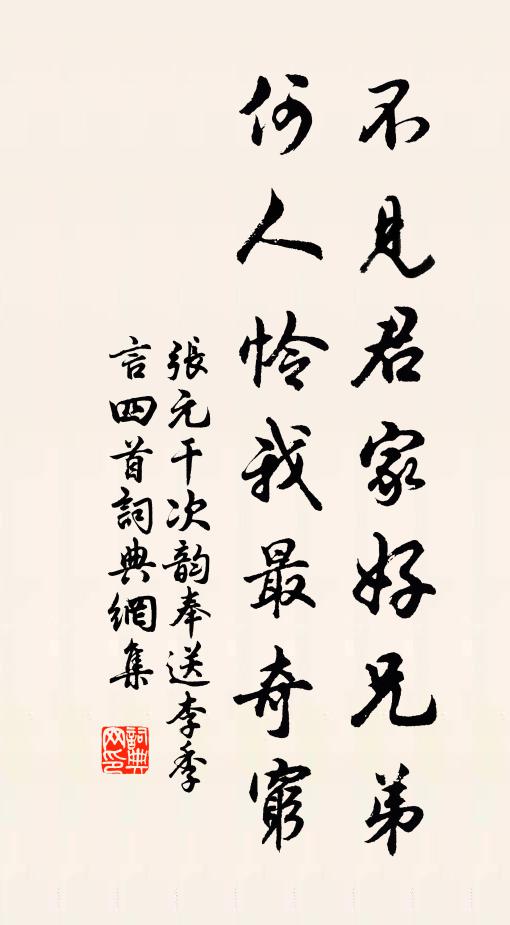 不見君家好兄弟
何人怜我最奇窮
張元干次韵奉送李季
言四首詞典網集
詞典網印